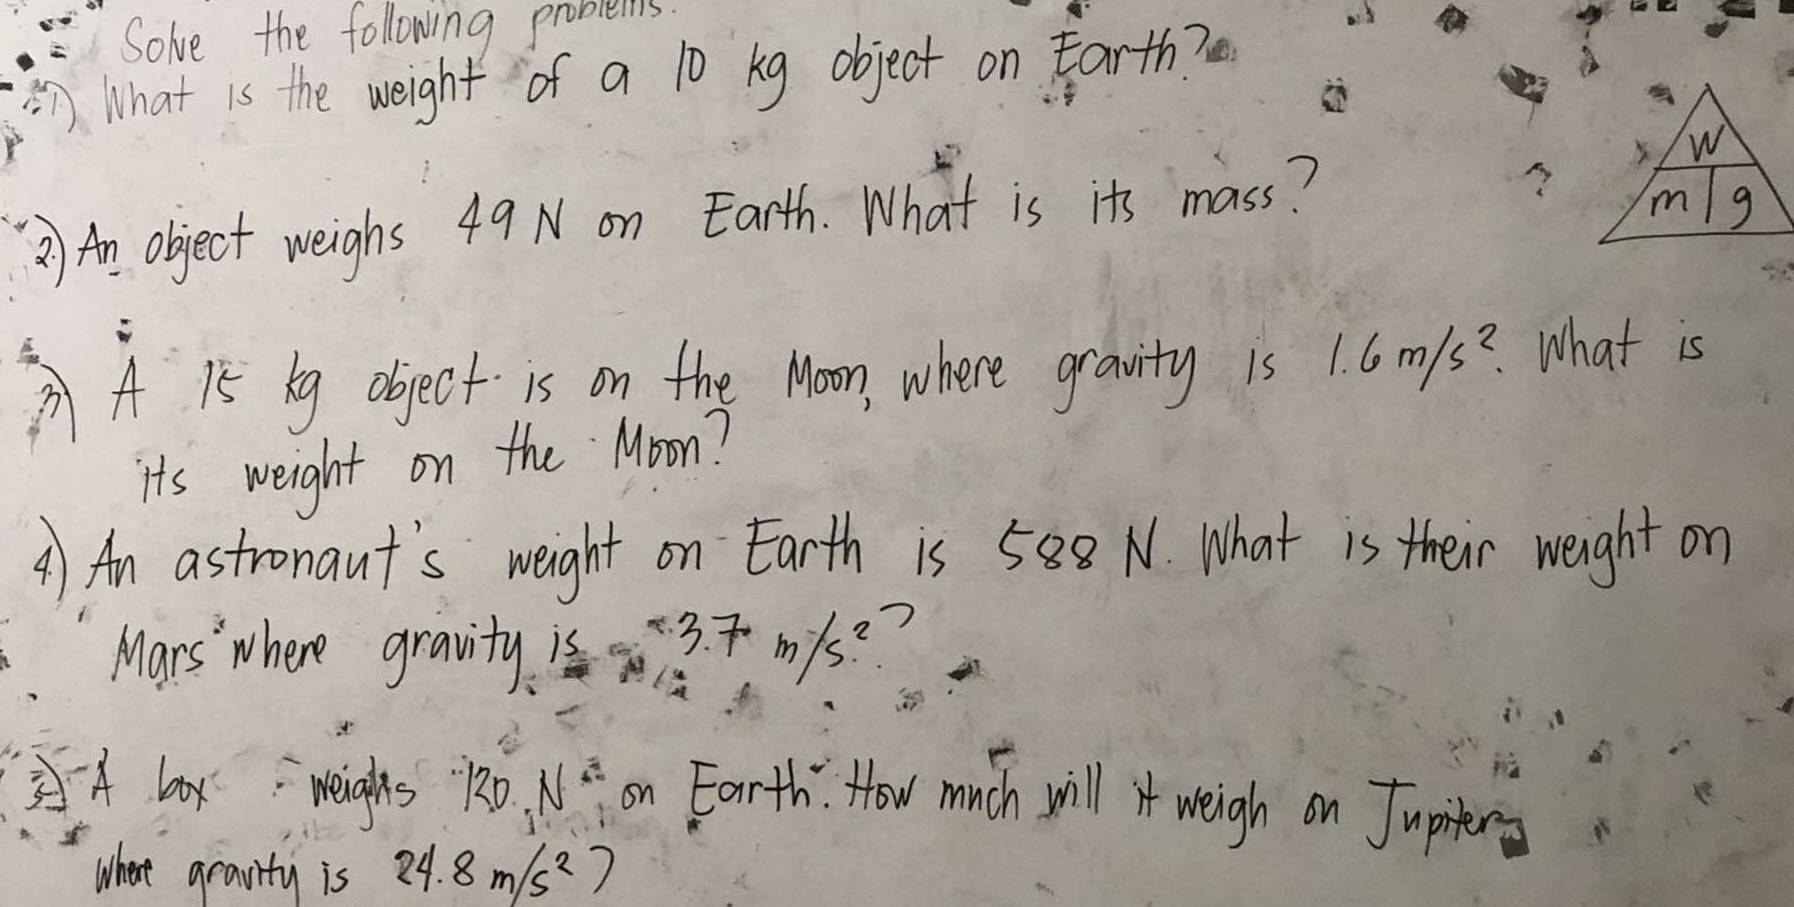 Solve the following problems.
1) What is the weight of a 10 kg object on Earth?
W
m g
2.) An object weighs 49 N on Earth. What is its mass?
3) A 15 kg object is on the Moon, where gravity is 1.6 m/s². What is
its weight on the Moon?
4.) An astronaut's weight on Earth is 588 N. What is their weight on
Mars where gravity is 3.7 m/s²?
5.) A box weighs 120 N on Earth. How much will it weigh on Jupiter,
where gravity is 24.8 m/s²?